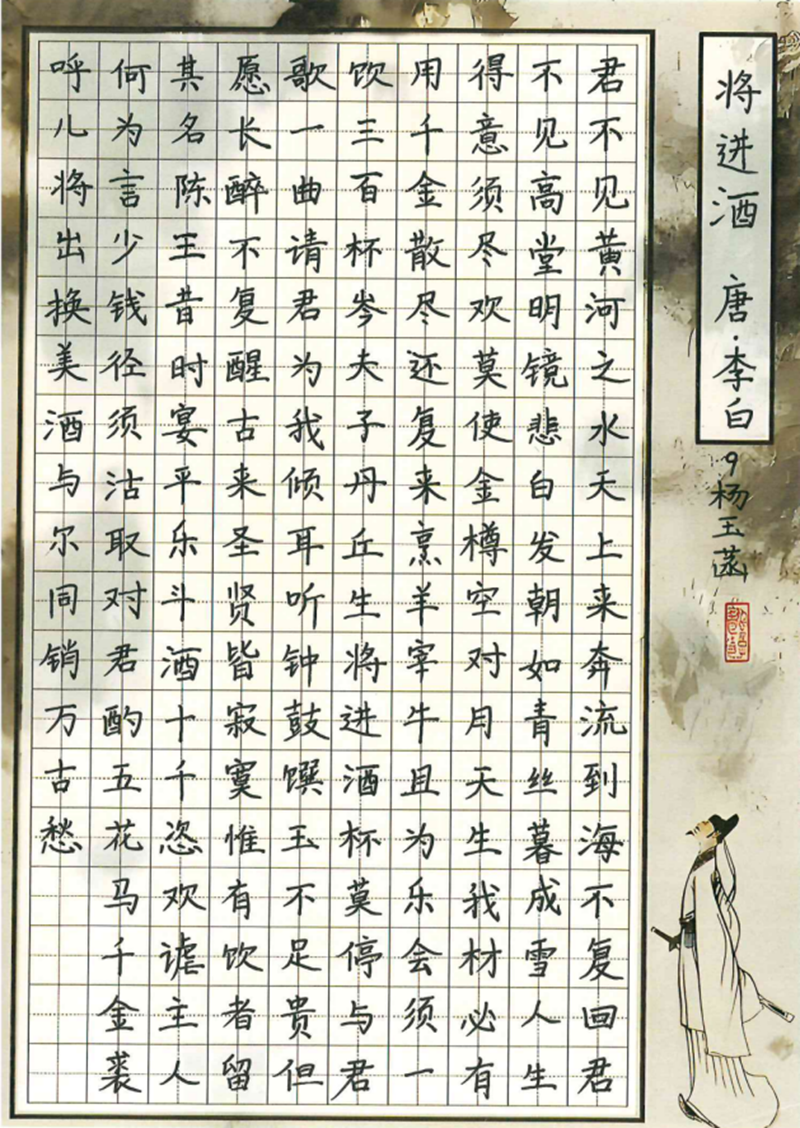 将进酒 唐·李白
9杨玉菡
君不见黄河之水天上来奔流到海不复回君
不见高堂明镜悲白发朝如青丝暮成雪人生
得意须尽欢莫使金樽空对月天生我材必有
用千金散尽还复来烹羊宰牛且为乐会须一
饮三百杯岑夫子丹丘生将进酒杯莫停与君
歌一曲请君为我倾耳听钟鼓馔玉不足贵但
愿长醉不复醒古来圣贤皆寂寞惟有饮者留
其名陈王昔时宴平乐斗酒十千恣欢谑主人
何为言少钱径须沽取对君酌五花马千金裘
呼儿将出换美酒与尔同销万古愁